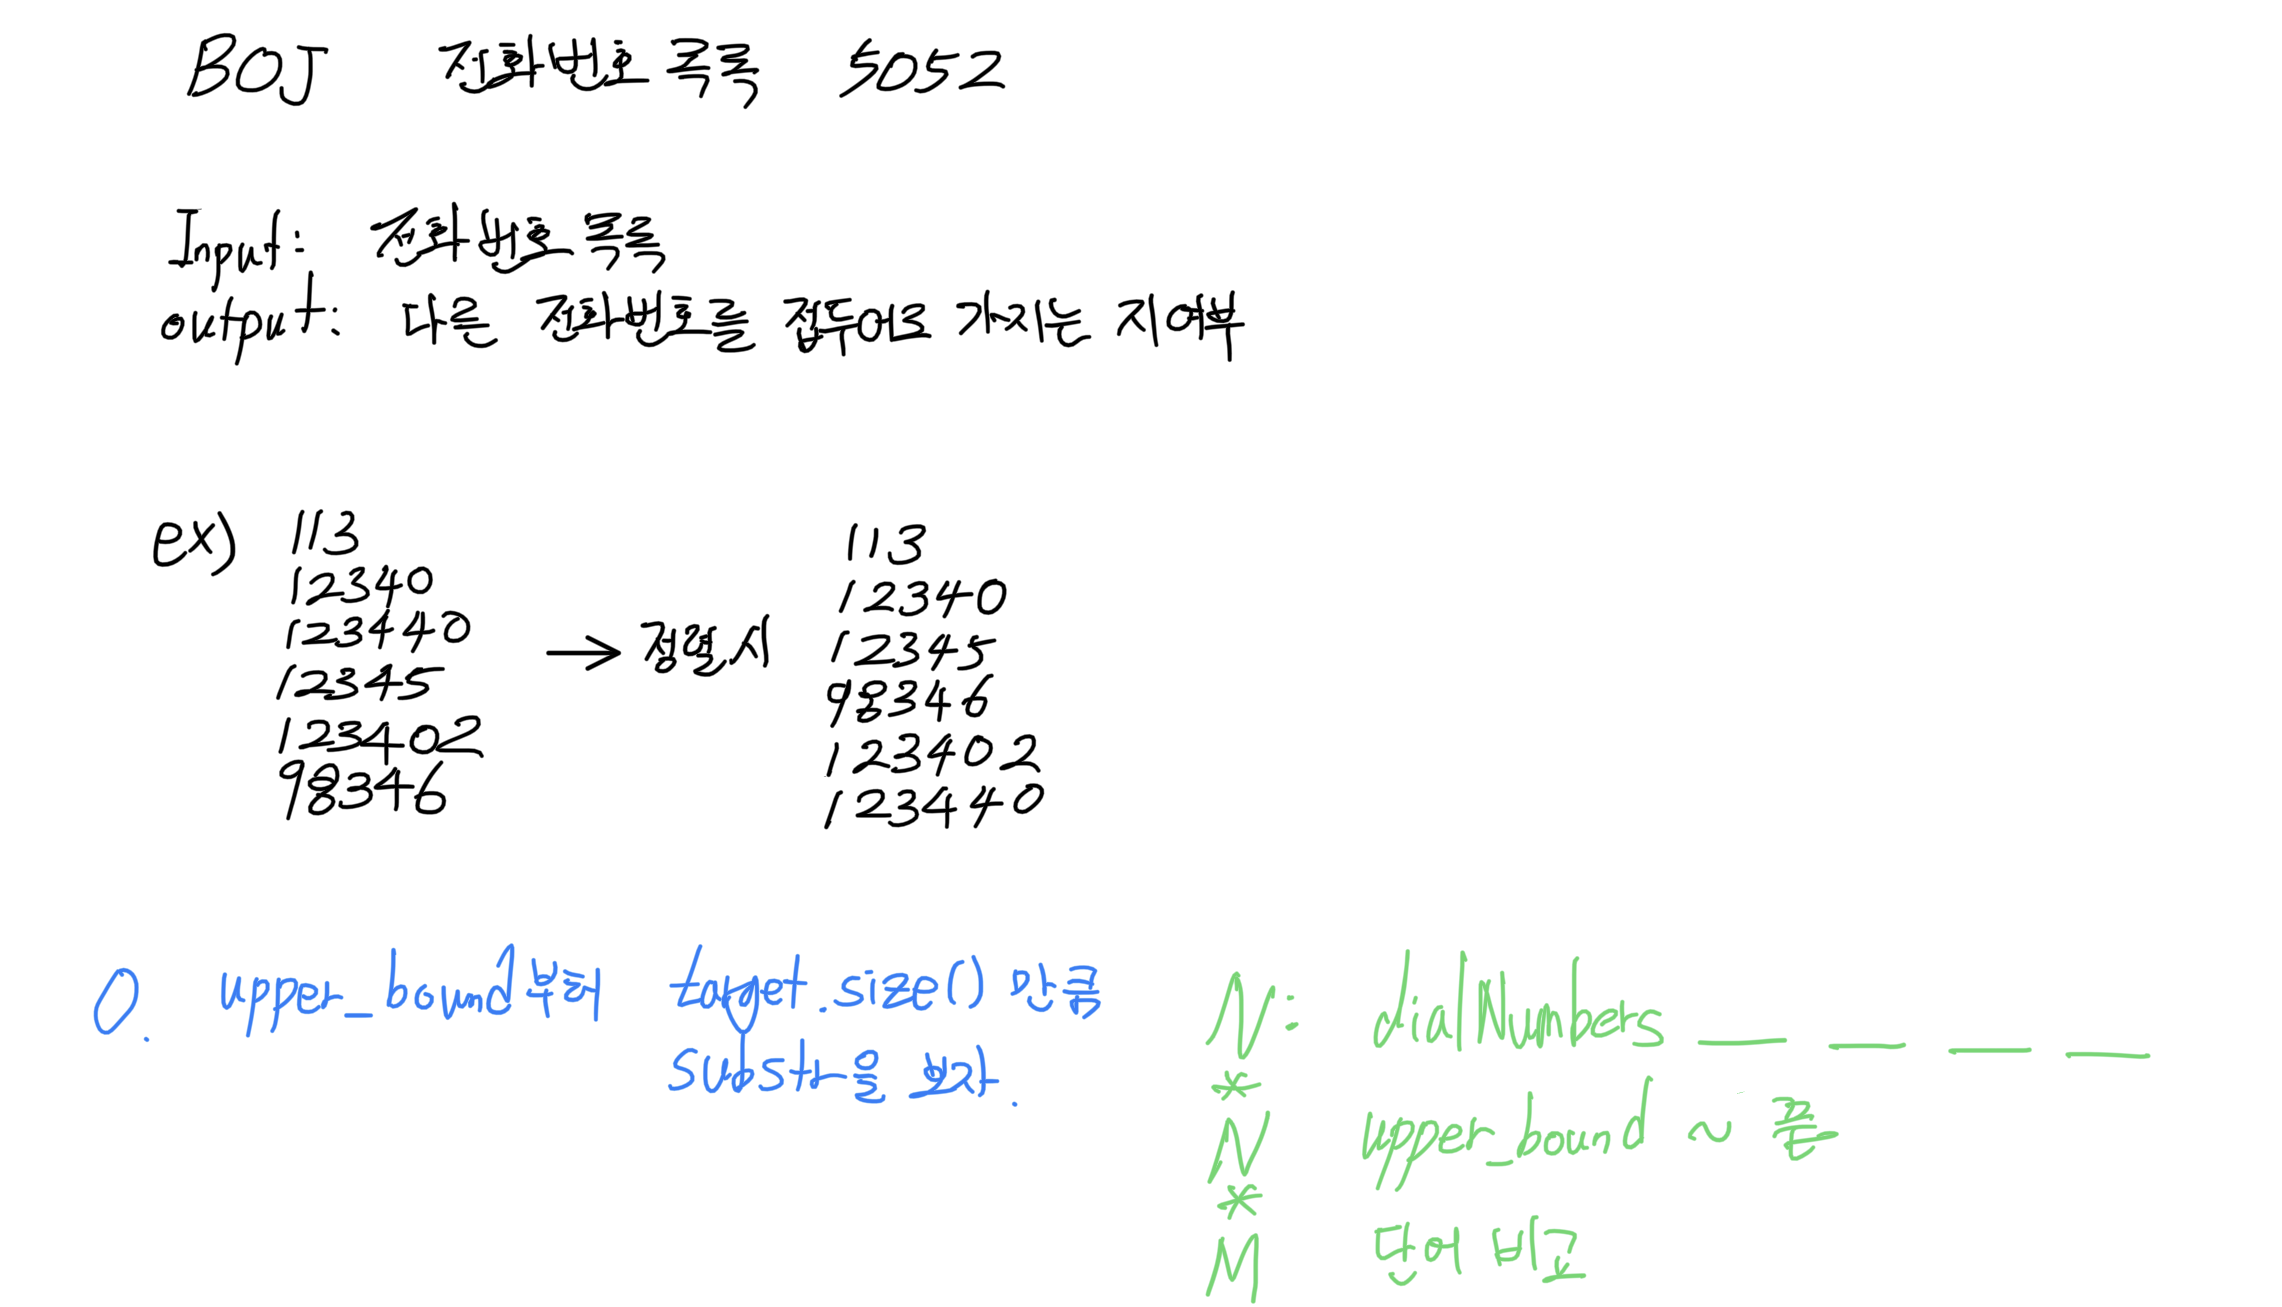 BOJ 전화번호 목록 5052
Input: 전화번호 목록
output: 다른 전화번호를 접두어로 가지는 지여부
ex) 113
12340
123440
12345
123402
98346
→ 정렬 시
113
12340
12345
98346
123402
123440
0. upper_bound부터 target.size() 만큼
substr을 보자.
N: dialNumbers __ __ __ __
*
N upper_bound ~ 끝
*
M 단어 비교